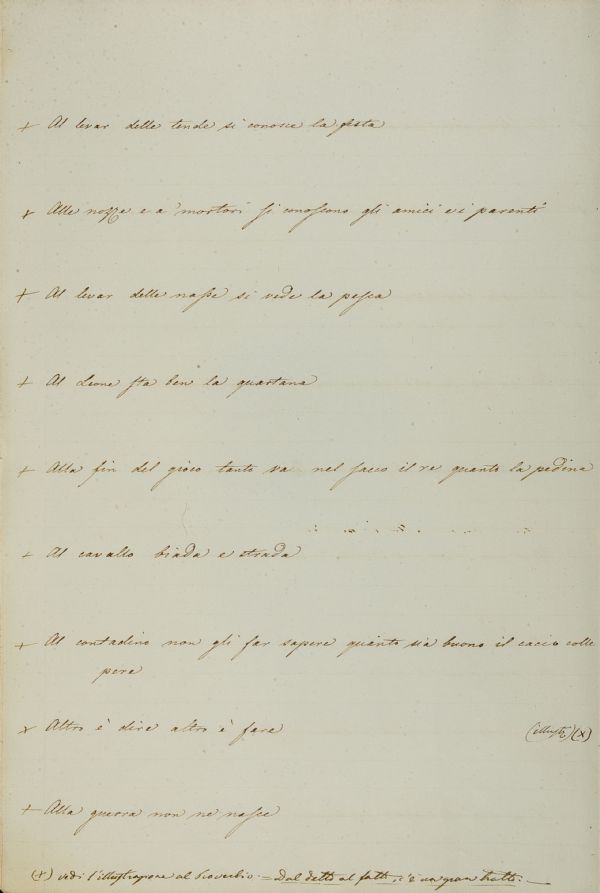 + Al levar delle tende si conosce la festa
+ Alle nozze e a' mortori si conoscono gli amici e i parenti
+ Al levar delle nasse si vede la pesca
+ Al Leone sta ben la quartana
+ Alla fin del gioco tanto va nel sacco il re quanto la pedina
+ Al cavallo biada e strada
+ Al contadino non gli far sapere quanto sia buono il cacio colle
pere
+ Altro è dire altro è fare (illustr.) (x)
+ Alla guerra non ne nasce
(x) vedi l'illustrazione al Proverbio = Dal detto al fatto, c'è un gran tratto. =